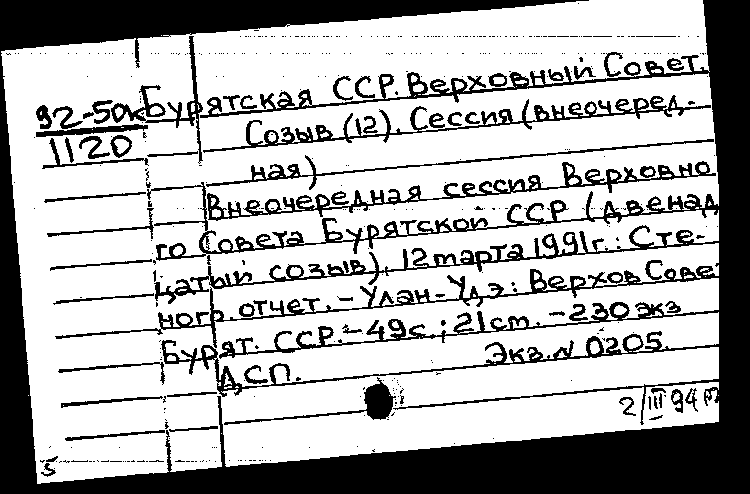 92-50к Бурятская ССР. Верховный Совет.
1120
Созыв (12). Сессия (внеочеред-
ная)
Внеочередная сессия Верховно
го Совета Бурятской ССР (двенад
цатый созыв), 12 марта 1991г.: Сте-
ногр. отчет. - Улан-Удэ: Верхов Совет
Бурят. ССР. - 49с.; 21 см. - 230 экз
ДСП. Экз. N 0205.
2/III 94
5